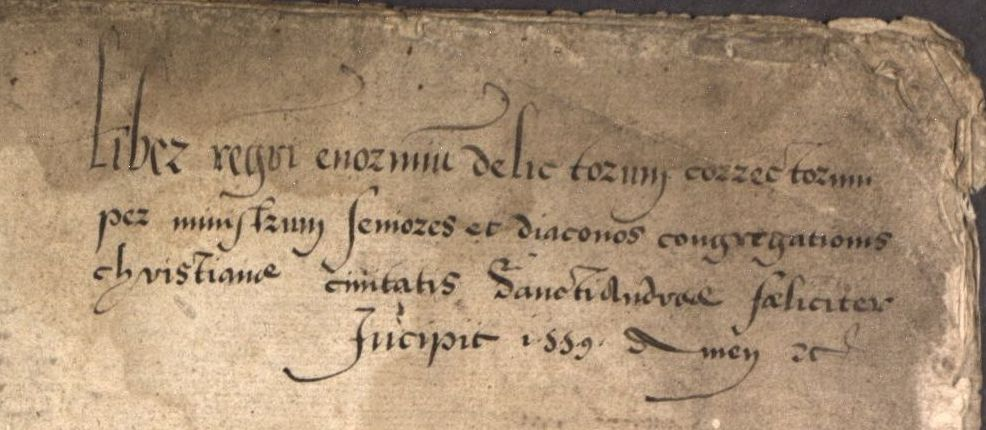 Liber regri enormiū delictorum correctorum
per ministrum seniores et diaconos congregationis
christianæ ciuitatis Sanctiandreæ fæliciter
Incipit 1559. Amen &c